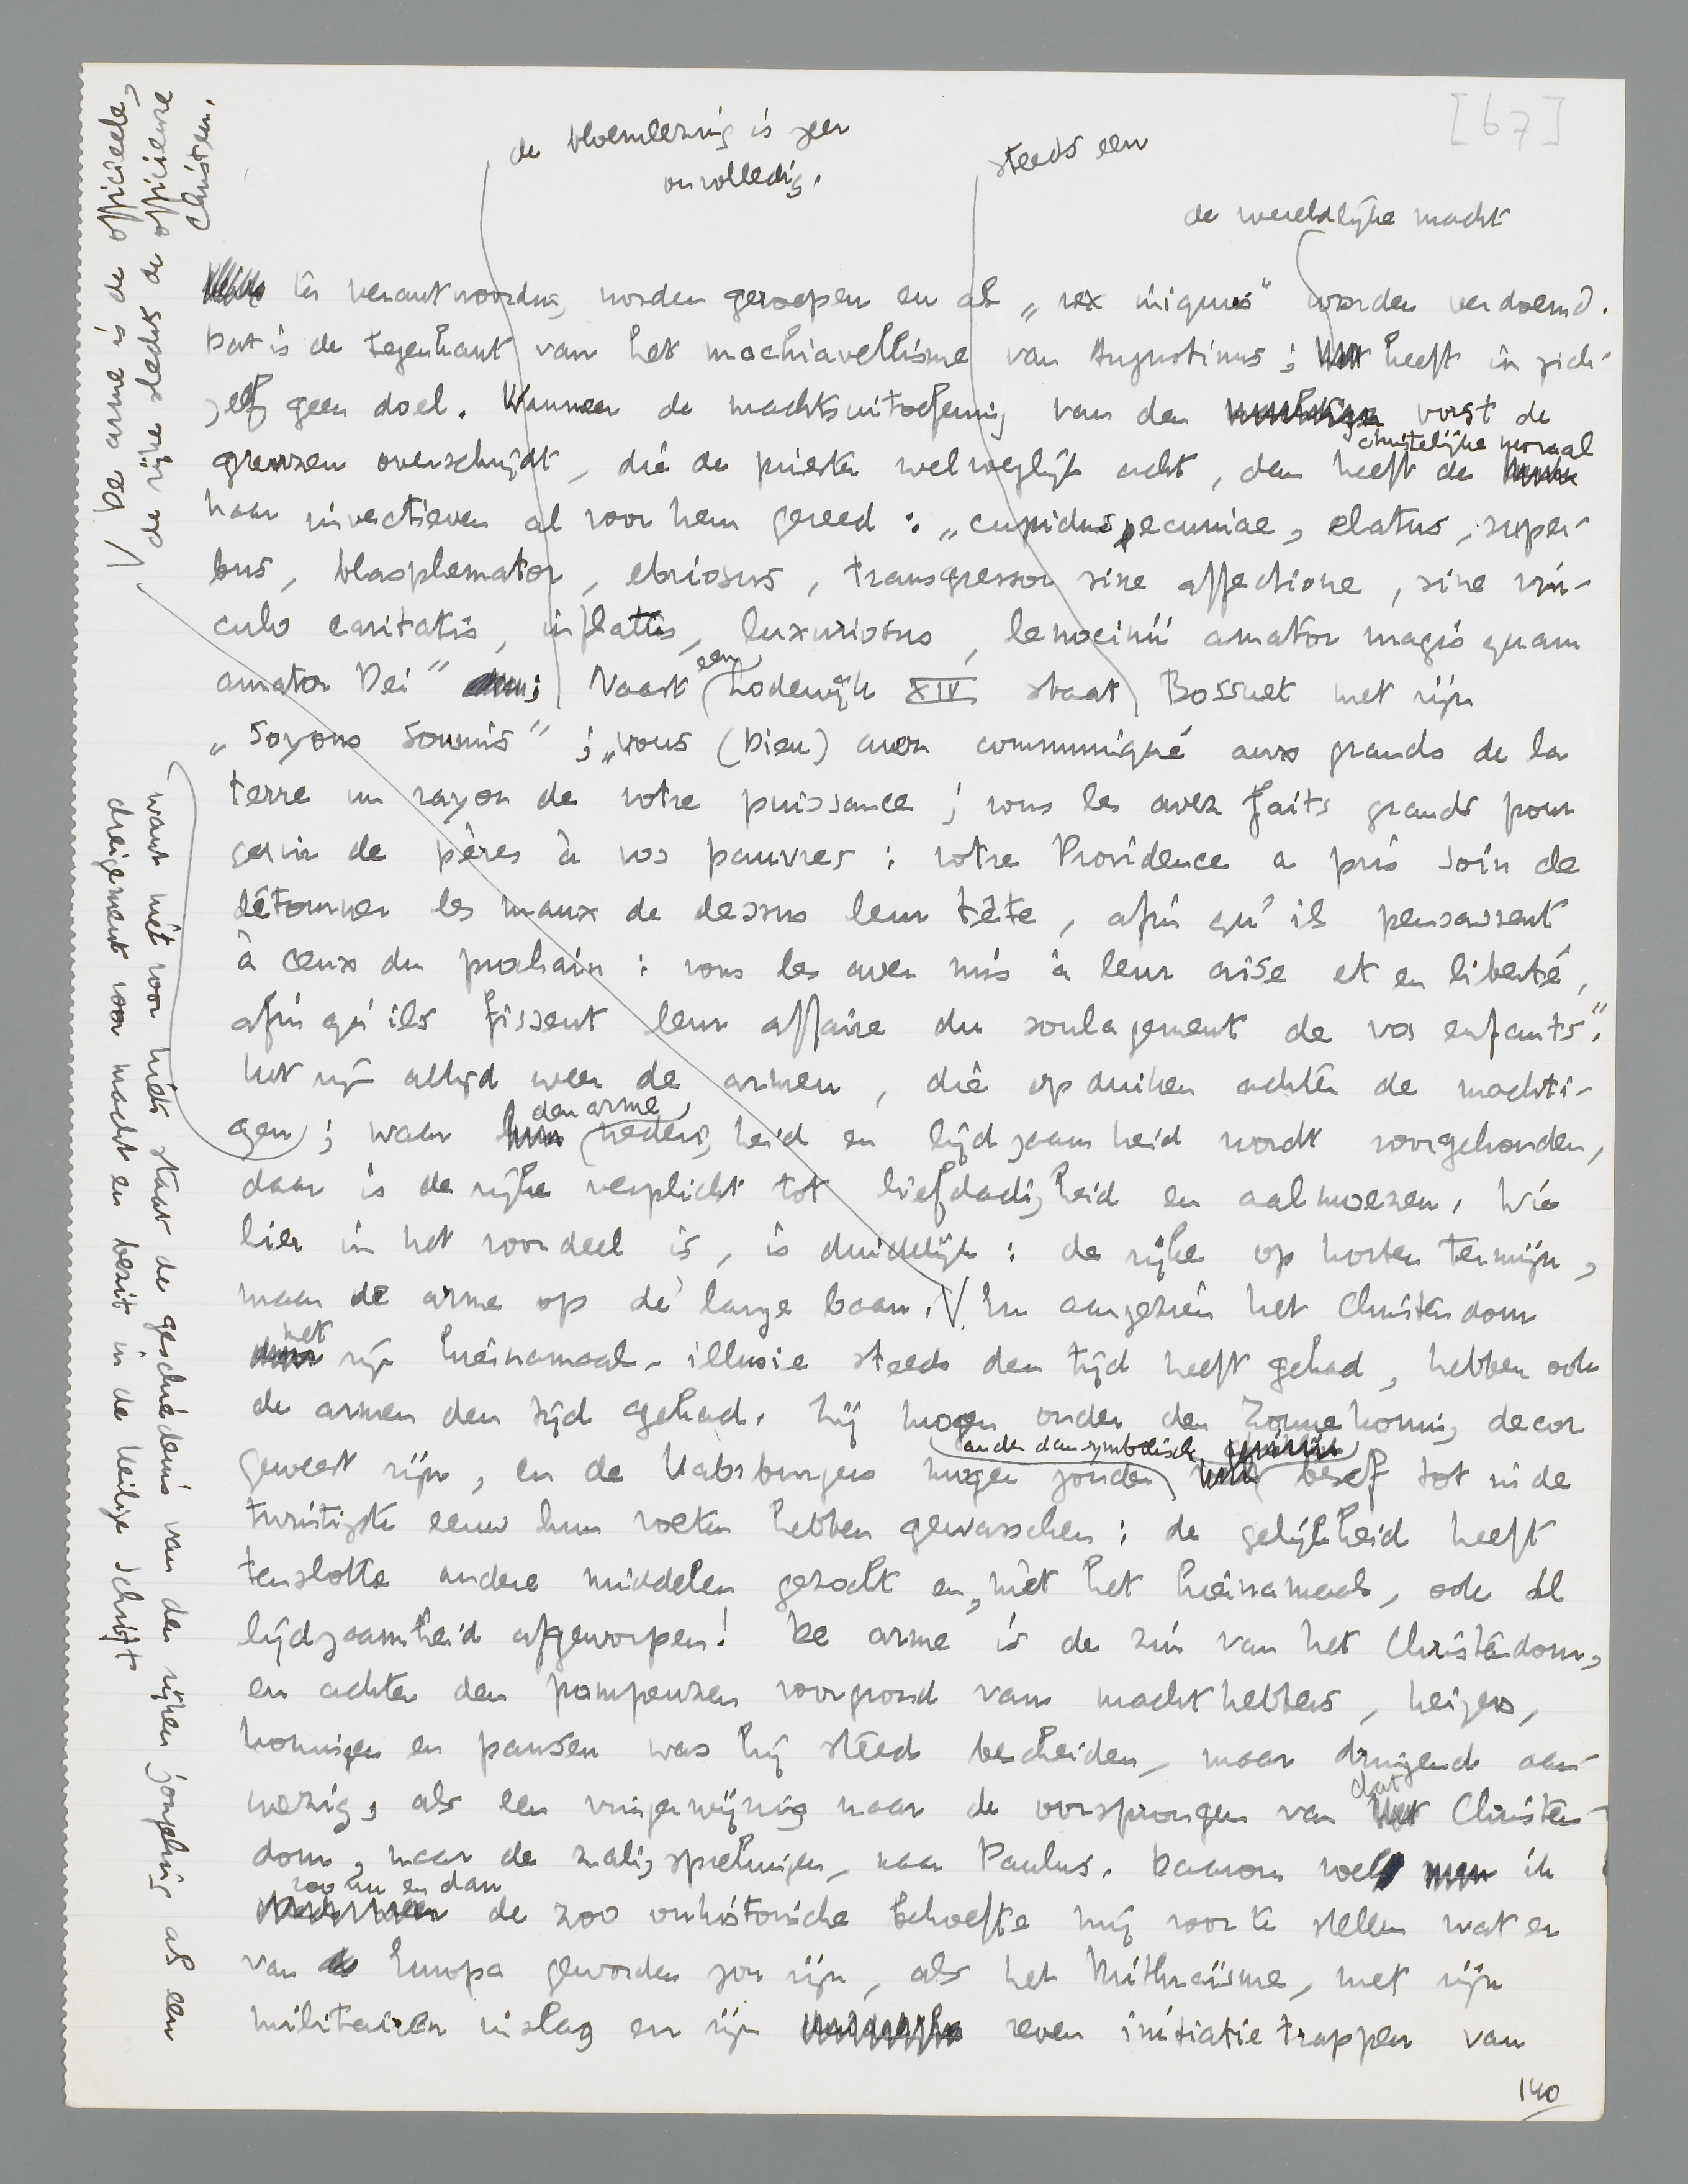 [67]
de bloemlezing is zeer
onvolledig.
steeds een
de wereldlijke macht
ter verantwoording worden geroepen en als „rex iniquus” worden verdoemd.
Dat is de tegenkant van het machiavellisme van Augustinus; heeft in zich-
zelf geen doel. Wanneer de machtsuitoefening van den vorst de
christelijke moraal
grenzen overschrijdt, die de priester welvoeglijk acht, dan heeft de
haar invectieven al voor hem gereed: „cupidus pecuniae, elatus, super-
bus, blasphemator, ebriosus, transgressor sine affectione, sine vin-
culo caritatis, inflatus, luxuriosus, lenocinii amator magis quam
amator Dei” Naast een Lodewijk XIV staat Bossuet met zijn
„Soyons soumis”; „vous (Dieu) avez communiqué aux grands de la
terre un rayon de votre puissance; vous les avez faits grands pour
servir de pères à vos pauvres: votre Providence a pris soin de
détourner les maux de dessus leur tête, afin qu'ils pensassent
à ceux du prochain: vous les avez mis à leur aise et en liberté,
afin qu'ils fissent leur affaire du soulagement de vos enfants”.
Het zijn altijd weer de armen, die opduiken achter de machti-
gen; waar den arme nederigheid en lijdzaamheid wordt voorgehouden,
daar is de rijke verplicht tot liefdadigheid en aalmoezen. Wie
hier in het voordeel is, is duidelijk: de rijke op korten termijn,
maar de arme op de lange baan. En aangezien het Christendom
met zijn hiernamaals-illusie steeds den tijd heeft gehad, hebben ook
de armen den tijd gehad. Zij mogen onder den Zonnekoning decor
onder den symbolisch
geweest zijn, en de Habsburgers mogen zonder besef tot in de
twintigste eeuw hun voeten hebben gewasschen: de gelijkheid heeft
tenslotte andere middelen gezocht en, mèt het hiernamaals, ook de
lijdzaamheid afgeworpen! De arme is de zin van het Christendom,
en achter den pompeuzen voorgrond van machthebbers, keizers,
koningen en pausen was hij steeds bescheiden, maar dreigend aan-
wezig, als een vingerwijzing naar de oorsprongen van dat Christen-
dom, naar de zaligsprekingen, naar Paulus. Daarom voel ik
zoo nu en dan de zoo onhistorische behoefte mij voor te stellen wat er
van Europa geworden zou zijn, als het Mithraïsme, met zijn
militairen inslag en zijn zeven initiatietrappen van
140
De arme is de officieele,
de rijke slechts de officieuze
Christen.
want niet voor niets staat de geschiedenis van den rijken jongeling als een
dreigement voor macht en bezit in de Heilige Schrift